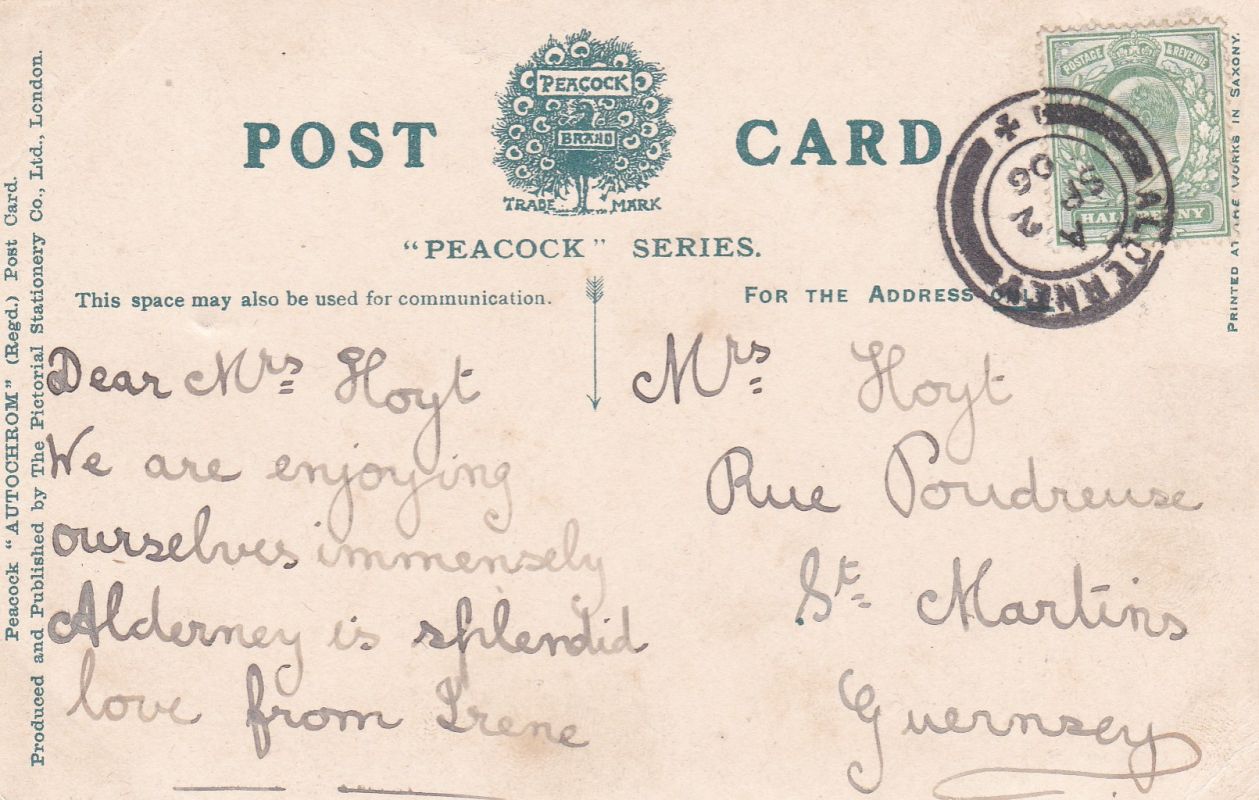 POST CARD
PEACOCK
BRAND
TRADE MARK
"PEACOCK" SERIES.
This space may also be used for communication.
FOR THE ADDRESS ONLY
POSTAGE & REVENUE
HALFPENNY
ALDERNEY
A
SP 2
06
Dear Mrs Hoyt
We are enjoying
ourselves immensely
Alderney is splendid
love from Irene
Mrs Hoyt
Rue Poudreuse
St. Martins
Guernsey
Peacock "AUTOCHROM" (Regd.) Post Card.
Produced and Published by The Pictorial Stationery Co., Ltd., London.
PRINTED AT THE WORKS IN SAXONY.